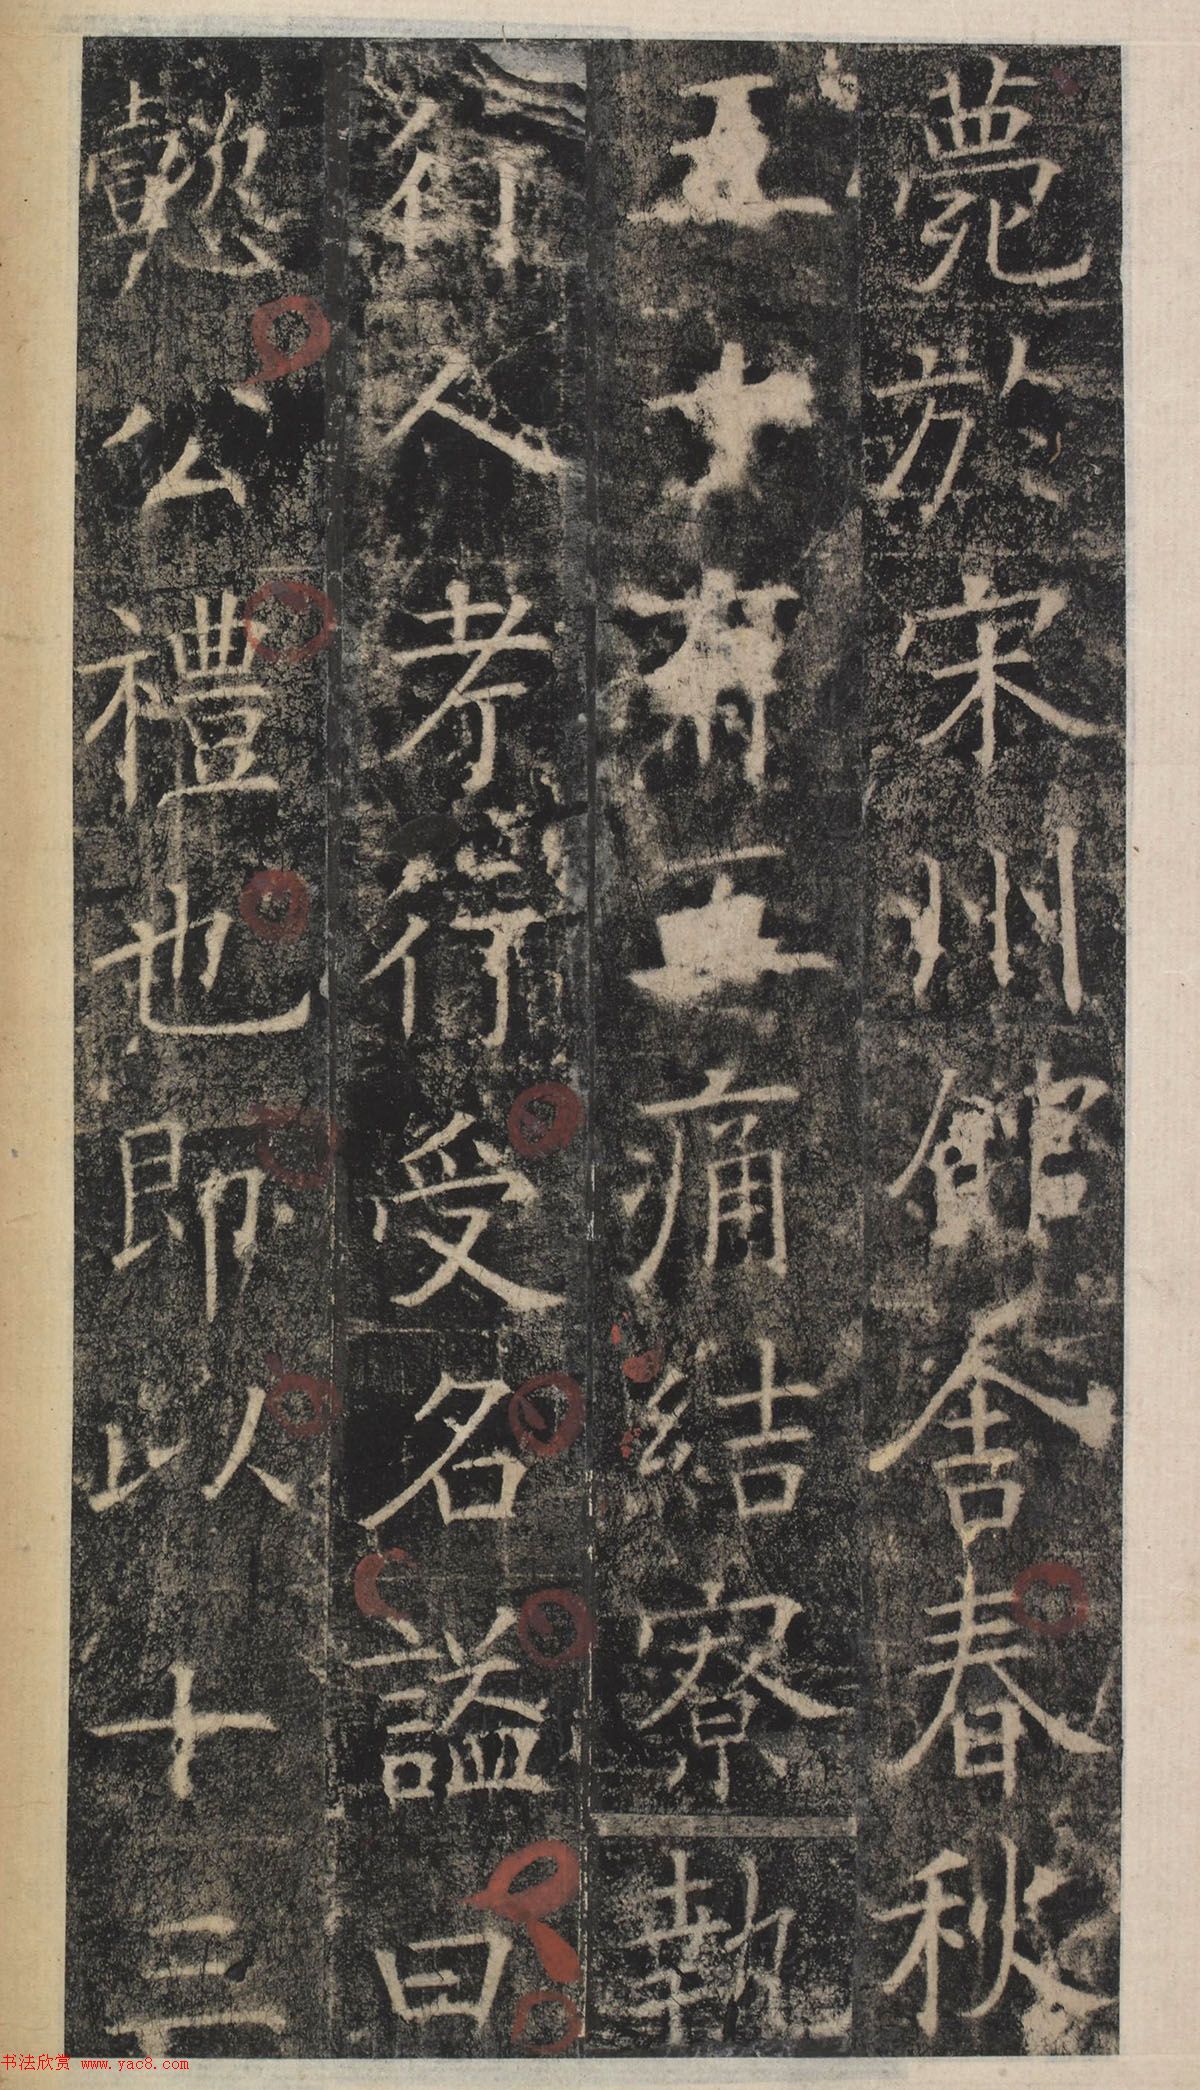 薨於宋州館舍春秋
五十有五痛結寮執
行人孝行受名謚曰
懿公禮也即以十三
书法欣赏 www.yac8.com